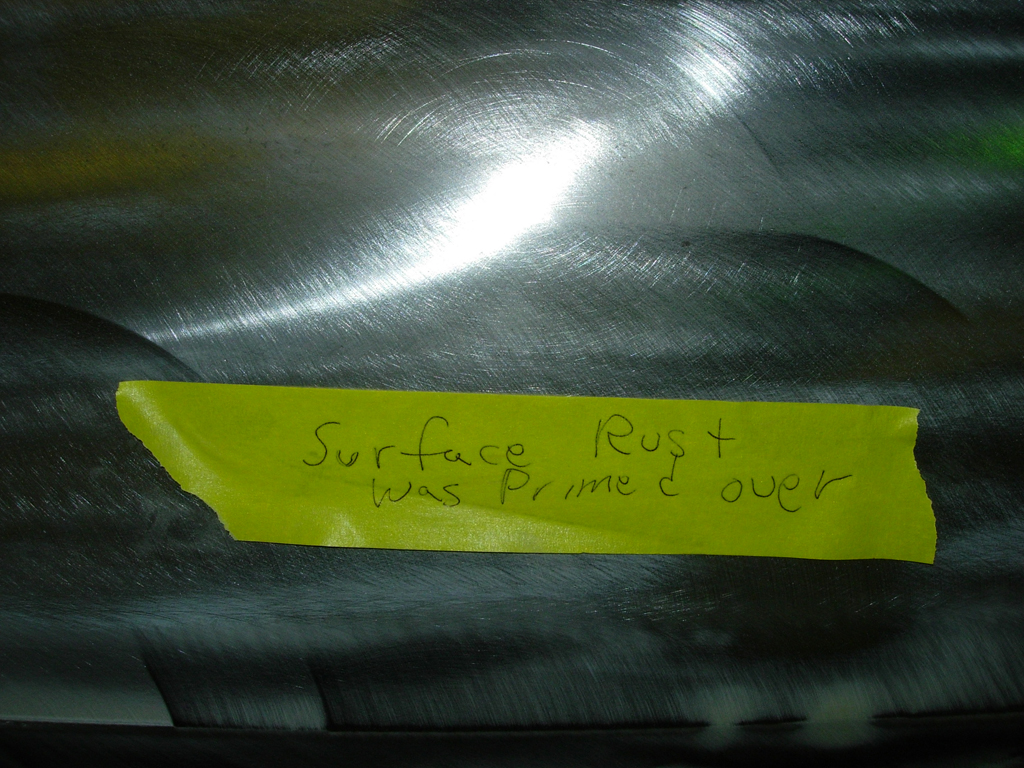 Surface Rust
was Primed over